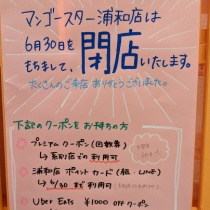 マンゴースター浦和店は
6月30を
もちまして、閉店いたします。
たくさんのご来店 ありがとうございました。
下記のクーポンをお持ちの方
プレミアムクーポン(回数券)
↳ 系列店での利用可
浦和店 ポイントカード(紙・LINE)
↳ 6/30まで利用可
Uber Eats ¥1000 OFF クーポン